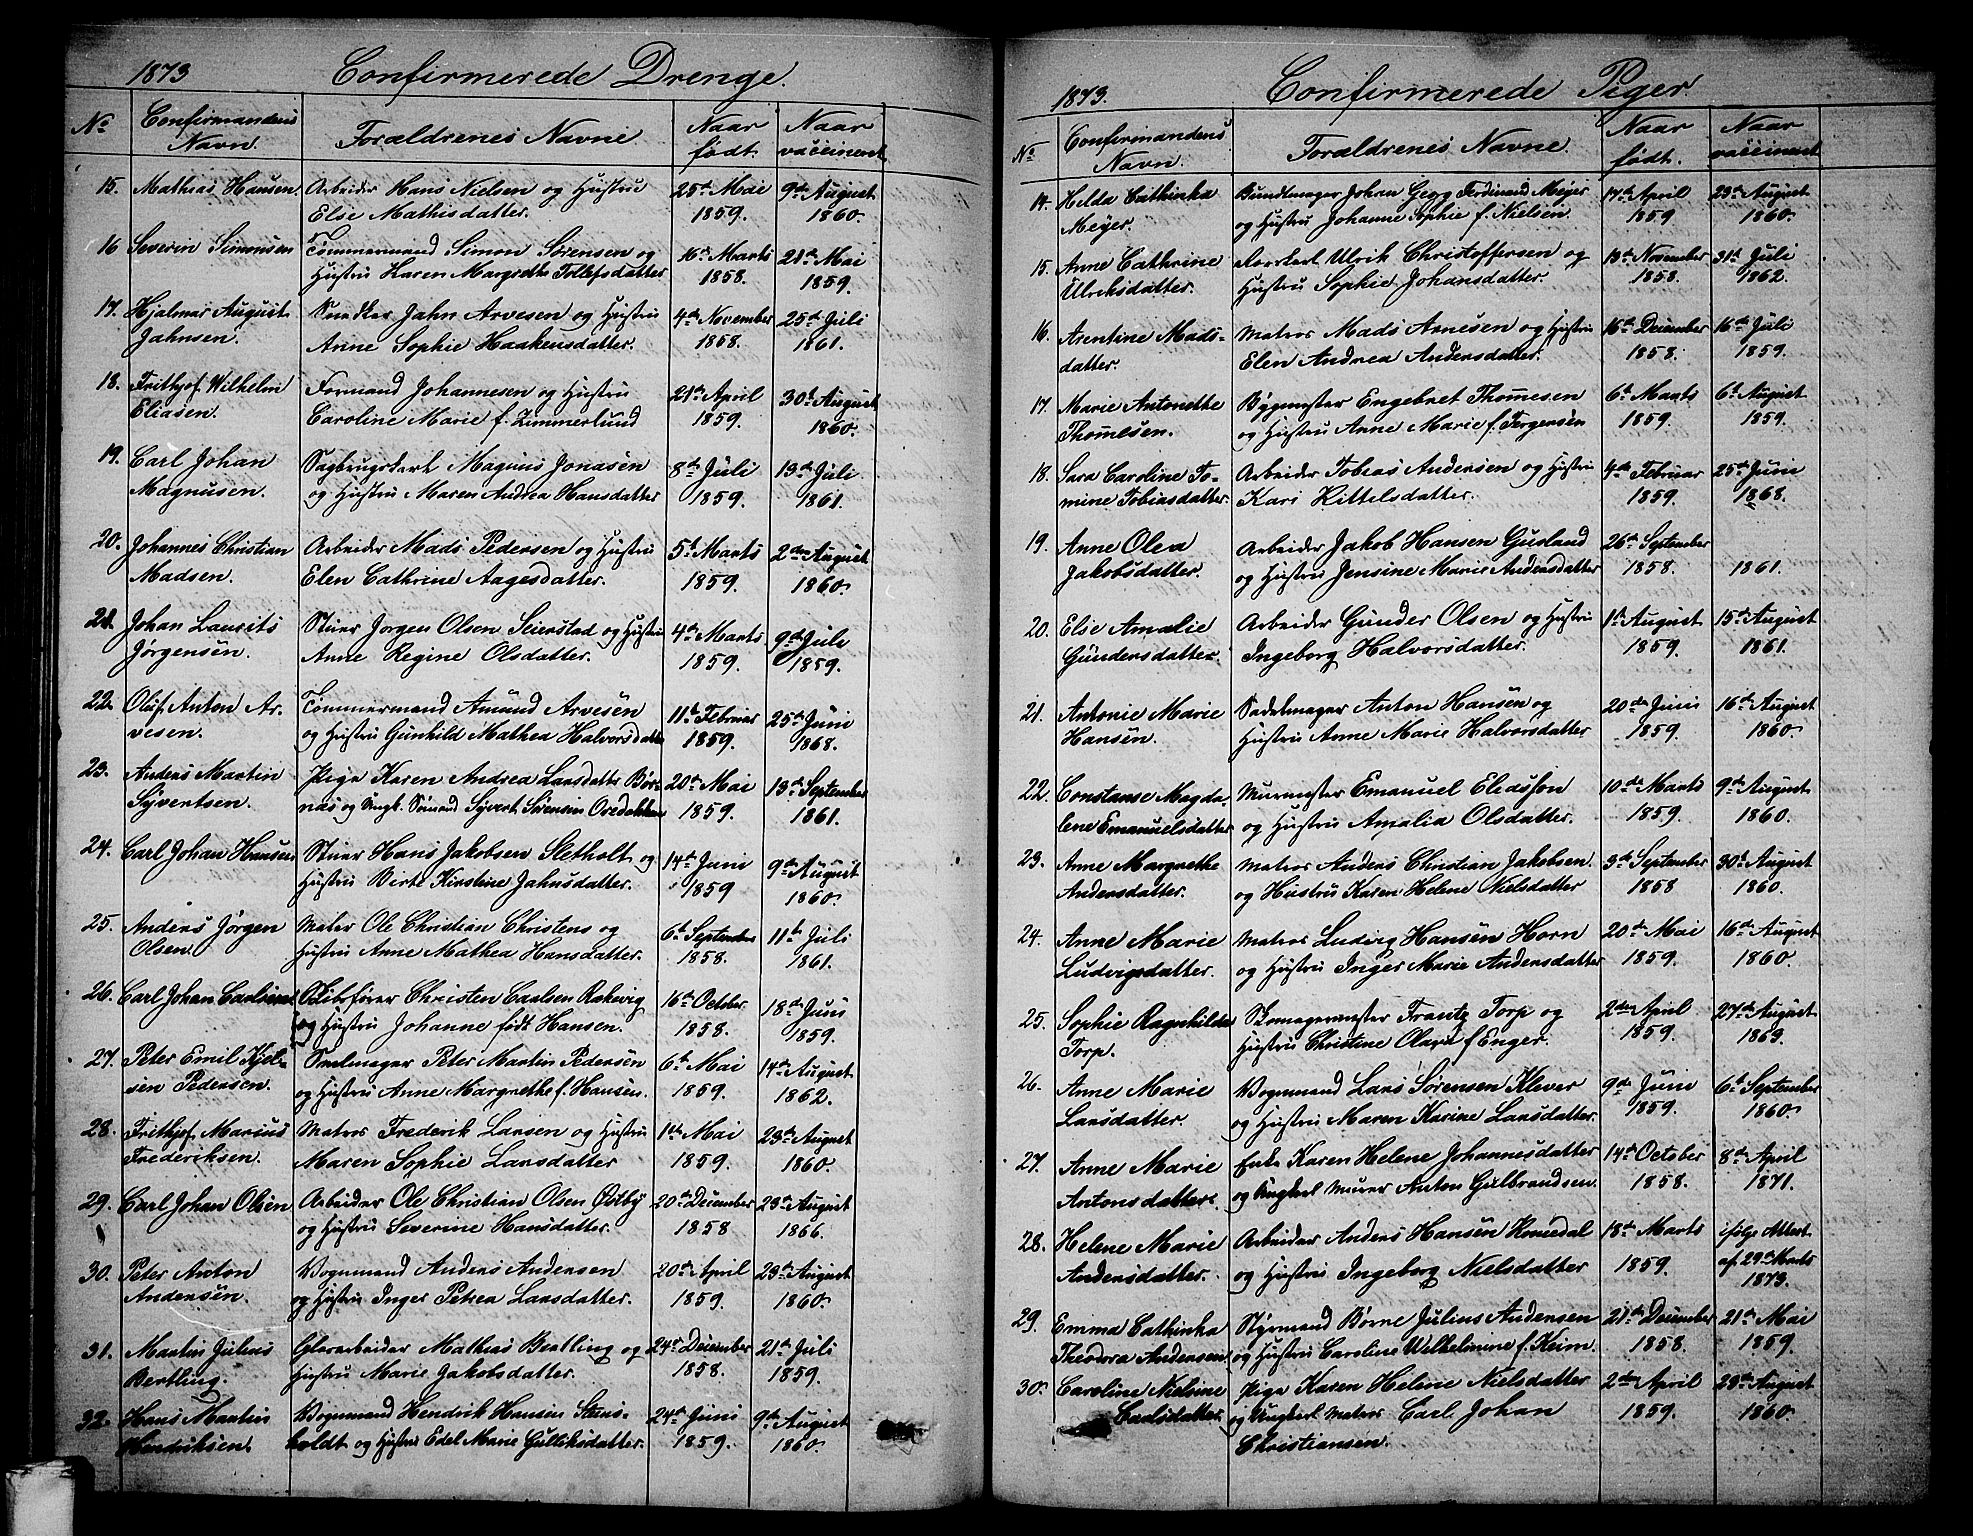 1873 Confirmerede Drenge.
No Confirmandens Navn. Forældrenes Navne. Naar født. Naar vaccineret.
15. Mathias Hansen. Arbeider Hans Nielsen og Hustru 25de Mai 9de August
Else Mathisdatter. 1859. 1860.
16 Severin Simonsen Tømmermand Simon Sørensen og 16de Marts 21de Mai
Hustru Karen Margrethe Tollefsdatter 1858. 1859.
17. Hjalmar August Smedker Jahn Arvesen og Hustru 4de November 25de Juli
Jahnsen. Anne Sophie Haakensdatter. 1858. 1861.
18. Frithjof Wilhelm Formand Johannesen og Hustru 21de April 30te August
Eliasen. Caroline Marie f. Zimmerlund 1859. 1860.
19. Carl Johan Sagbrugskarl Magnus Jonasen 8de Juli 13de Juli
Magnusen. og Hustru Maren Andrea Hansdatter 1859. 1861.
20. Johannes Christian Arbeider Mads Pedersen og Hustru 5te Marts 2den August
Madsen. Elen Cathrine Aagesdatter. 1859. 1860.
21. Johan Laurits Stuer Jørgen Olsen Seierstad og Hustru 4de Marts 9de Juli
Jørgensen. Anne Regine Olsdatter. 1859. 1859.
22. Oluf Anton Ar- Tømmermand Amund Arvesen 11te Februar 25de Juni
vesen. og Hustru Gunhild Mathea Halvorsdatter 1859. 1868.
23. Anders Martin Pige Karen Andrea Larsdatter Bør- 20de Mai 13de September
Syvertsen. nas og Ungk. Sømand Syvert Sørensen 1859. 1861.
24. Carl Johan Hansen Stuer Hans Jakobsen Sletholt og 14de Juni 9de August
Hustru Birte Kirstine Jahnsdatter. 1859 1860.
25. Anders Jørgen Matros Ole Christian Christens og 6te September 11te Juli
Olsen. Hustru Anne Mathea Hansdatter. 1858. 1861.
26. Carl Johan Carlsen Christen Carlsen Rakevig 16de October 18de Juni
og Hustru Johanne født Hansen. 1858. 1859.
27. Peter Emil Kjel- Smelmager Peter Martin Pedersen 6te Mai 14de August
sen Pedersen. og Hustru Anne Margrethe f. Hansen. 1859. 1862.
28. Frithjof Marius Matros Frederik Larsen og Hustru 1ste Mai 23de August
Frederiksen. Maren Sophie Larsdatter 1859. 1860.
29. Carl Johan Olsen Arbeider Ole Christian Olsen Østby 20de December 23de August
og Hustru Severine Hansdatter. 1858 1866.
30. Peter Anton Vognmand Anders Andersen 20de April 23de August
Andersen. og Hustru Inger Petrea Larsdatter. 1859. 1860.
31. Martin Julius Glasarbeider Mathias Bertling og 24de December 21de Juli
Bertling. Hustru Marie Jakobsdatter. 1858. 1859.
32. Hans Martin Vognmand Hendrik Hansen Stens- 24de Juni 9de August
Hendriksen. holdt og Hustru Edel Marie Gulliksdatter. 1859. 1860.
1873. Confirmerede Piger.
No Confirmandens Navn. Forældrenes Navne. Naar født. Naar vaccineret
14. Helda Cathinka Bundtmager Johan Georg Ferdinand Meyer 17de April 23de August
Meyer. og Hustru Johanne Sophie f. Nielsen. 1859 1860.
15. Anne Cathrine Ulrik Christoffersen og 13de November 31te Juli
Ulriksdatter. Hustru Sophie Johansdatter. 1858. 1862.
16. Arentine Mads- Matros Mads Arnesen og Hustru 16de December 16de Juli
datter. Elen Andrea Andersdatter. 1858. 1859.
17. Marie Antonette Bygmester Engebret Thomesen 6te Marts 6te August
Thomesen. og Hustru Anne Marie f. Jørgensen 1859. 1859.
18. Sara Caroline To- Arbeider Tobias Andersen og Hustru 4de Februar 25de Juni
mine Tobiasdatter. Kari Kittelsdatter. 1859. 1868.
19. Anne Olea Arbeider Jakob Hansen Gusland 26de September
Jakobsdatter. og Hustru Jensine Marie Andersdatter 1858. 1861.
20. Else Amalie Arbeider Gunder Olsen og Hustru 1ste August 15de August
Gundersdatter. Ingeborg Halvorsdatter. 1859. 1861.
21. Antonie Marie Sadelmager Anton Hansen og 20de Juni 16de August
Hansen. Hustru Anne Marie Halvorsdatter 1859. 1860.
22. Constanse Magda- Murmester Emanuel Eliasson 10de Marts 9de August
lene Emanuelsdatter og Hustru Amalia Olsdatter. 1859. 1860.
23. Anne Margrethe Matros Anders Christian Jakobsen. 3de September 30te August
Andersdatter. og Hustru Karen Helene Nielsdatter 1858 1860.
24. Anne Marie Matros Ludvig Hansen Horn 20de Mai 16de August
Ludvigsdatter. og Hustru Inger Marie Andersdatter 1859. 1860.
25. Sophie Ragnhilda Garvermester Frantz Torp og 2den April 27de August
Torp. Hustru Christine Olava f Enger. 1859. 1869.
26. Anne Marie Vognmand Lars Sørensen Klever 9de Juni 6te September
Larsdatter. og Hustru Maren Karine Larsdatter. 1859. 1860.
27. Anne Marie Enke Karen Helene Johannesdatter 14de October 8de April
Antonsdatter. og Ungkarl Murer Anton Gulbrandsen. 1858. 1871.
28. Helene Marie Arbeider Anders Hansen 18de Marts ifølge Attest
Andersdatter. og Hustru Ingeborg Nielsdatter 1859. af 29de Marts
1873.
29. Emma Cathinka Styrmand Børne Julius Andersen 21de December 21de Mai
Theodora Andersen og Hustru Caroline Wilhelmine f. Keim. 1858. 1859.
30. Caroline Nielsine Pige Karen Helene Nielsdatter 2den April 28de August
Carlsdatter. og Ungkarl Matros Carl Johan 1859. 1860.
Christiansen.